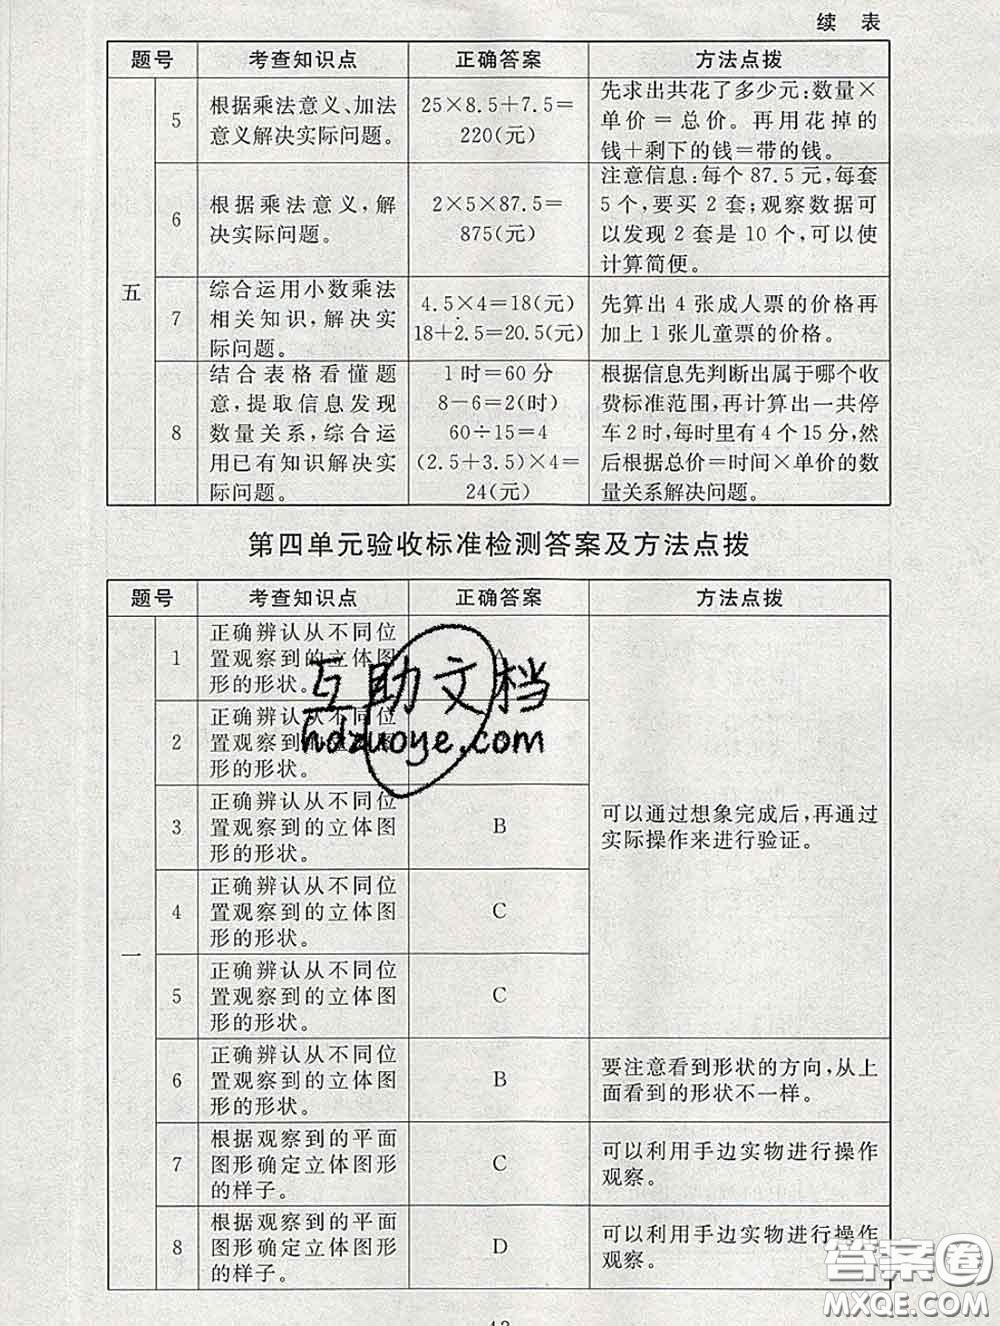 续　表
题号 考查知识点 正确答案 方法点拨
五
5
根据乘法意义、加法
意义解决实际问题。
25×8.5+7.5=
220(元)
先求出共花了多少元:数量×
单价=总价。再用花掉的
钱+剩下的钱=带的钱。
6
根据乘法意义,解
决实际问题。
2×5×87.5=
875(元)
注意信息:每个 87.5 元,每套
5 个,要买 2 套;观察数据可
以发现 2 套是 10 个,可以使
计算简便。
7
综合运用小数乘法
相关知识,解决实
际问题。
4.5×4=18(元)
18+2.5=20.5(元)
先算出 4 张成人票的价格再
加上 1 张儿童票的价格。
8
结合表格看懂题
意,提取信息发现
数量关系,综合运
用已有知识解决实
际问题。
1 时=60 分
8-6=2(时)
60÷15=4
(2.5+3.5)×4=
24(元)
根据信息先判断出属于哪个收
费标准范围,再计算出一共停
车2时,每时里有4个15分,然
后根据总价=时间×单价的数
量关系解决问题。
第四单元验收标准检测答案及方法点拨
题号 考查知识点 正确答案 方法点拨
一
1
正确辨认从不同位
置观察到的立体图
形的形状。
2
正确辨认从不同位
置观察到的立体图
形的形状。
3
正确辨认从不同位
置观察到的立体图
形的形状。
B
可以通过想象完成后,再通过
实际操作来进行验证。
4
正确辨认从不同位
置观察到的立体图
形的形状。
C
5
正确辨认从不同位
置观察到的立体图
形的形状。
C
6
正确辨认从不同位
置观察到的立体图
形的形状。
B
要注意看到形状的方向,从上
面看到的形状不一样。
7
根据观察到的平面
图形确定立体图形
的样子。
C
可以利用手边实物进行操作
观察。
8
根据观察到的平面
图形确定立体图形
的样子。
D
可以利用手边实物进行操作
观察。
互助文档
hdzuoye.com
答案圈
MXQE.COM